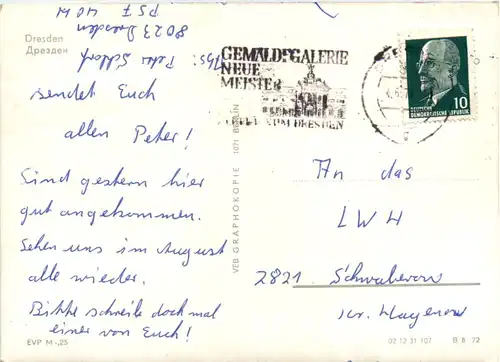 Dresden
Дрезден
8023 Dresden
sendet Euch
allen Peter!
Sind gestern hier
gut angekommen.
Sehen uns im August
alle wieder.
Bitte schreibe doch mal
einer von Euch!
EVP M -,25
VEB GRAPHOKOPIE 1071 BERLIN
GEMÄLDEGALERIE
NEUE
MEISTER
DRESDEN
10
DEUTSCHE
DEMOKRATISCHE REPUBLIK
An das
LWH
2821 Schwaberow
Kr. Hagenow
02 12 31 107 B 8 72